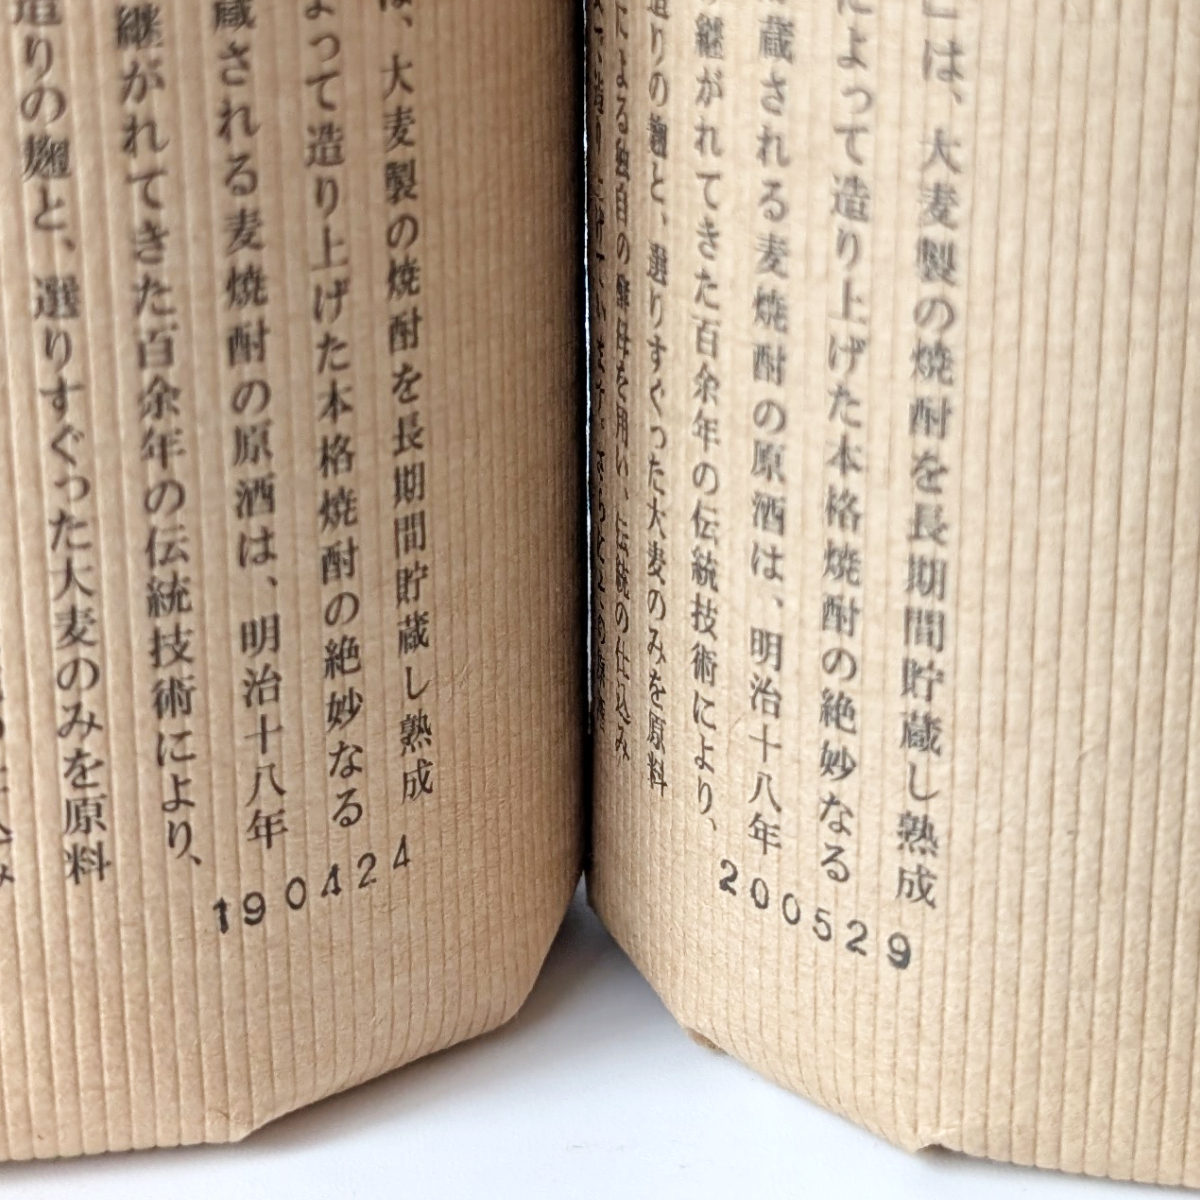 は、大麦製の焼酎を長期間貯蔵し熟成
よって造り上げた本格焼酎の絶妙なる
蔵される麦焼酎の原酒は、明治十八年
継がれてきた百余年の伝統技術により、
造りの麹と、選りすぐった大麦のみを原料
190424
」は、大麦製の焼酎を長期間貯蔵し熟成
によって造り上げた本格焼酎の絶妙なる
蔵される麦焼酎の原酒は、明治十八年
継がれてきた百余年の伝統技術により、
造りの麹と、選りすぐった大麦のみを原料
による独自の酵母を用い、伝統の仕込み
200529